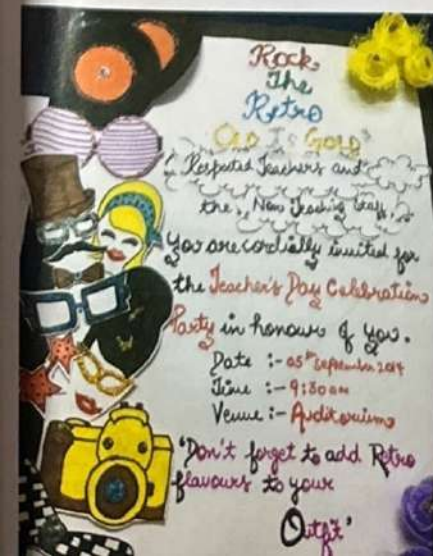 Rock
The
Retro
"Old Is Gold"
Respected Teachers and
the Non Teaching Staff,
You are cordially invited for
the Teacher's Day Celebration
Party in honour of you.
Date :- 05th September 2014
Time :- 9:30am
Venue :- Auditorium
'Don't forget to add Retro
flavours to your
Outfit'